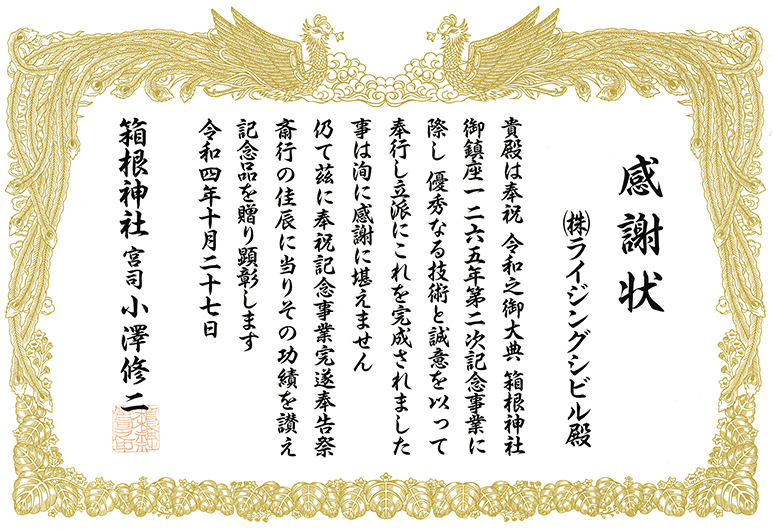 感謝状
㈱ライジングシビル殿
貴殿は奉祝 令和之御大典 箱根神社
御鎮座一二六五年第二次記念事業に
際し 優秀なる技術と誠意を以って
奉行し立派にこれを完成されました
事は洵に感謝に堪えません
仍て茲に奉祝記念事業完遂奉告祭
斎行の佳辰に当りその功績を讃え
記念品を贈り顕彰します
令和四年十月二十七日
箱根神社 宮司 小澤修二